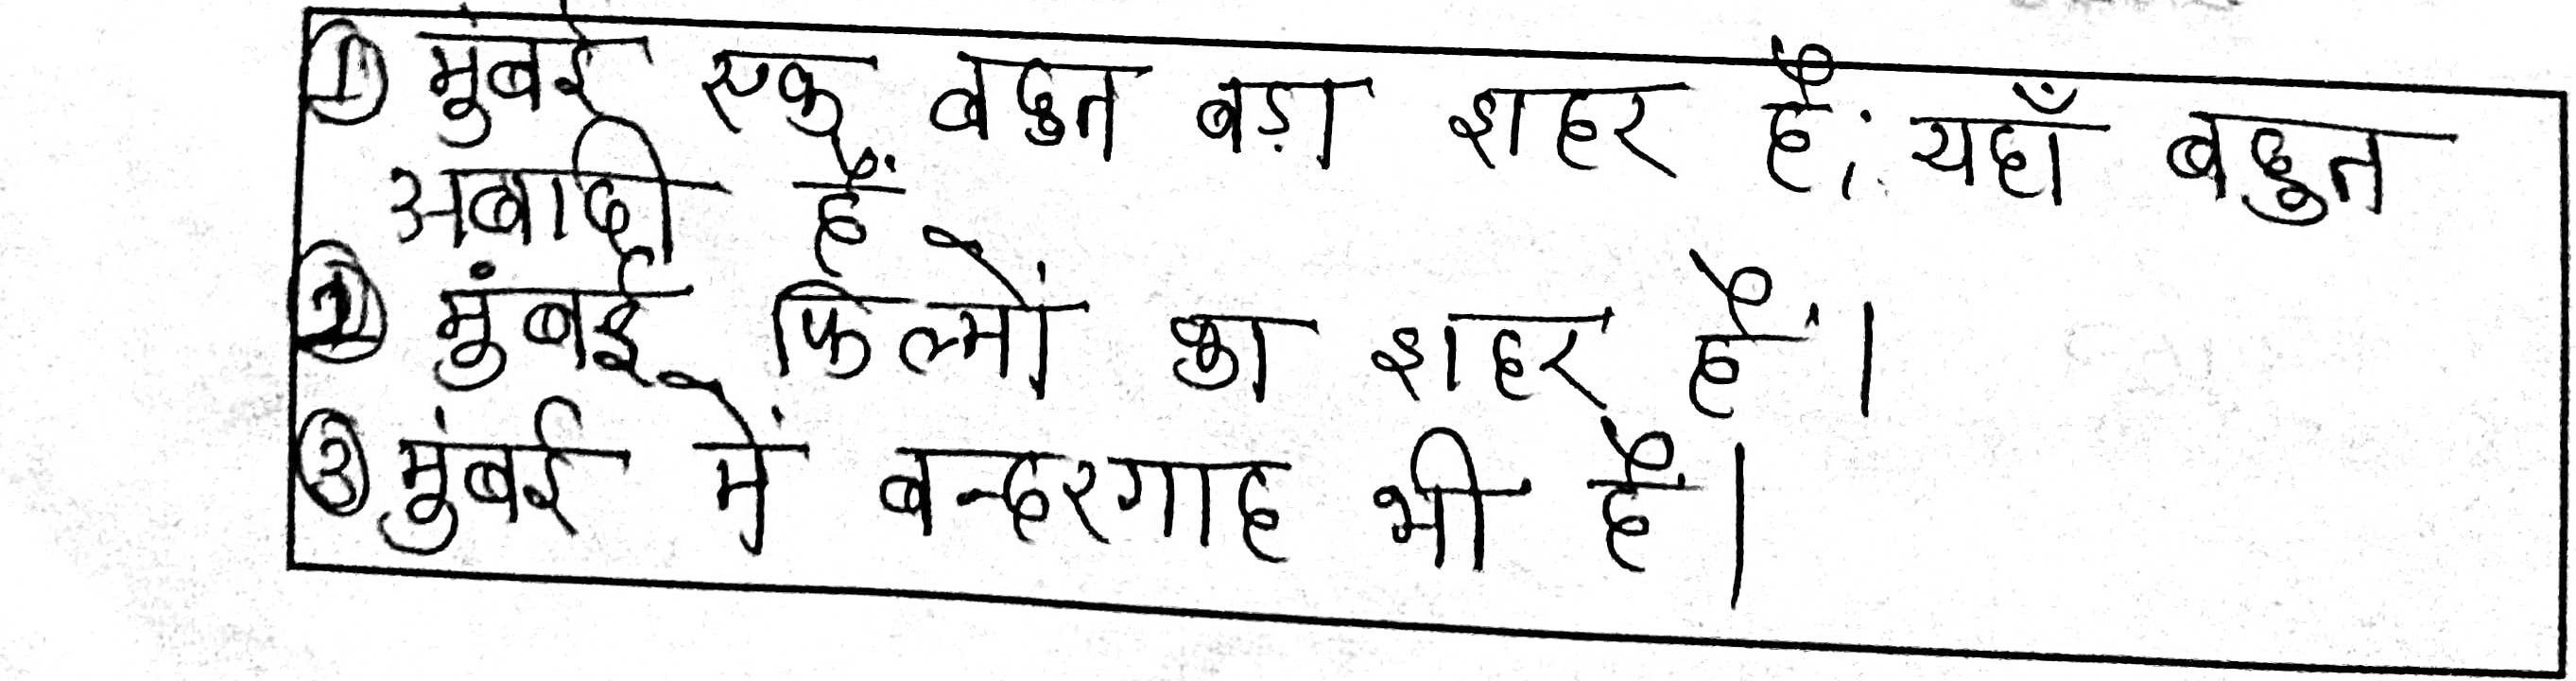 ① मुंबई एक बहुत बड़ा शहर है; यहाँ बहुत
अबादी हैं
② मुंबई फिल्मों का शहर है।
③ मुंबई में बन्दरगाह भी है।